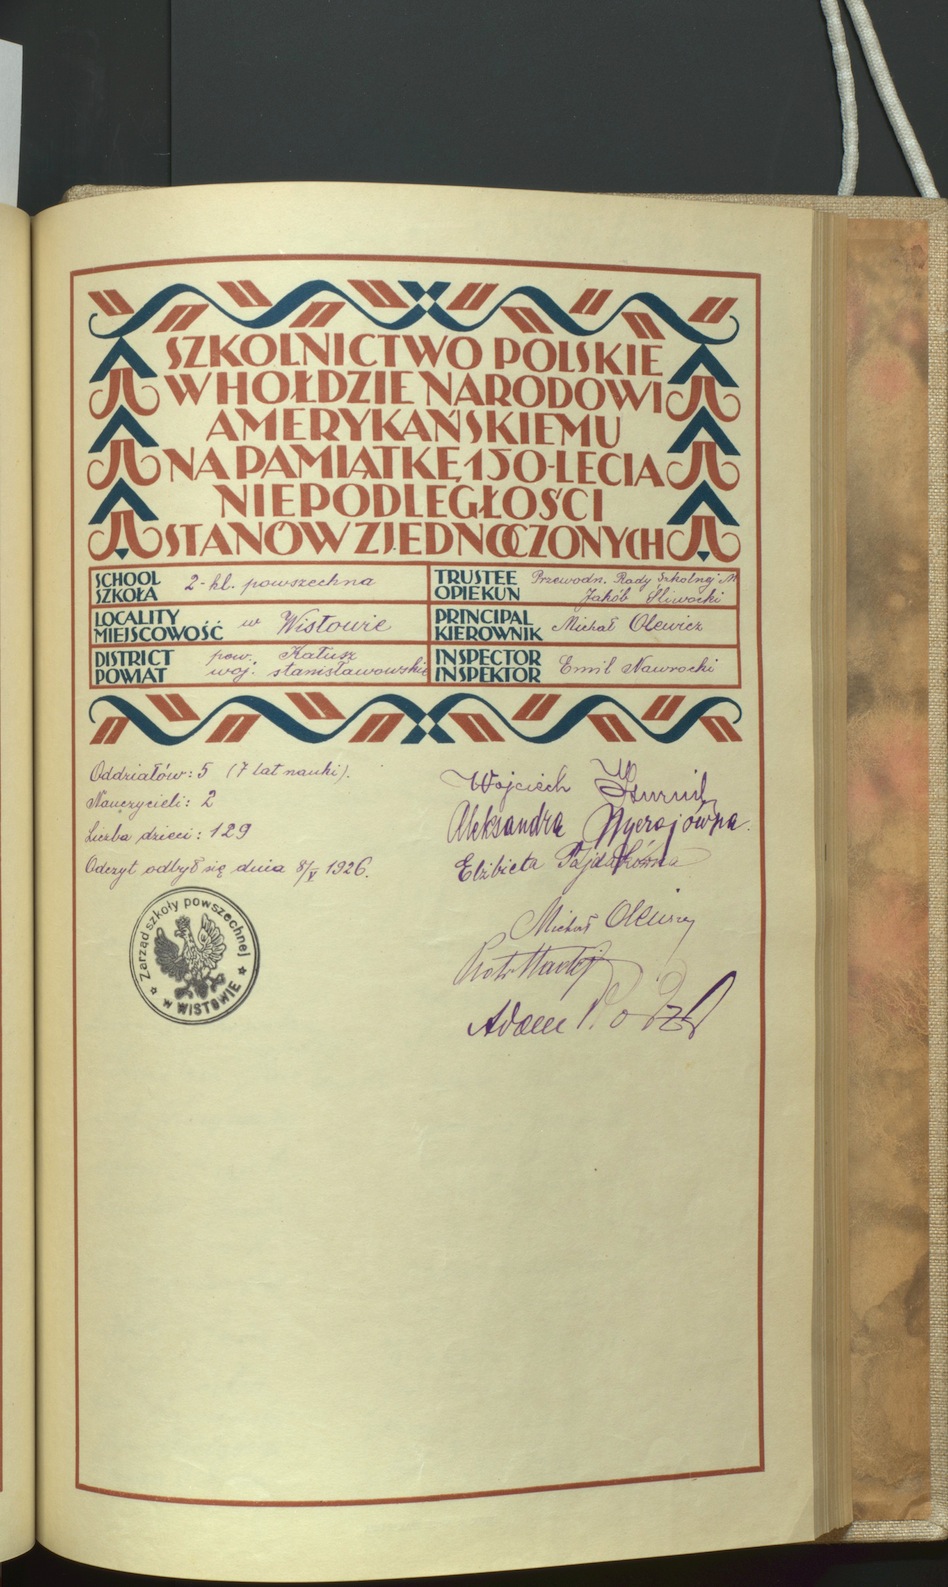 SZKOLNICTWO POLSKIE
W HOŁDZIE NARODOWI
AMERYKAŃSKIEMU
NA PAMIĄTKĘ 150-LECIA
NIEPODLEGŁOŚCI
STANÓW ZJEDNOCZONYCH
SCHOOL
SZKOŁA
2-kl. powszechna
TRUSTEE
OPIEKUN
Przewodn. Rady Szkolnej M
Jakób Śliwocki
LOCALITY
MIEJSCOWOŚĆ
w Wistowie
PRINCIPAL
KIEROWNIK
Michał Olewicz
DISTRICT
POWIAT
pow. Kałusz
woj. stanisławowskie
INSPECTOR
INSPEKTOR
Emil Nawrocki
Oddziałów: 5 (7 lat nauki).
Nauczycieli: 2
Liczba dzieci: 129
Odczyt odbył się dnia 8/V 1926.
Zarząd szkoły powszechnej
w WISTOWIE
Wojciech
Aleksandra
Elżbieta
Michał
Piotr
Adam